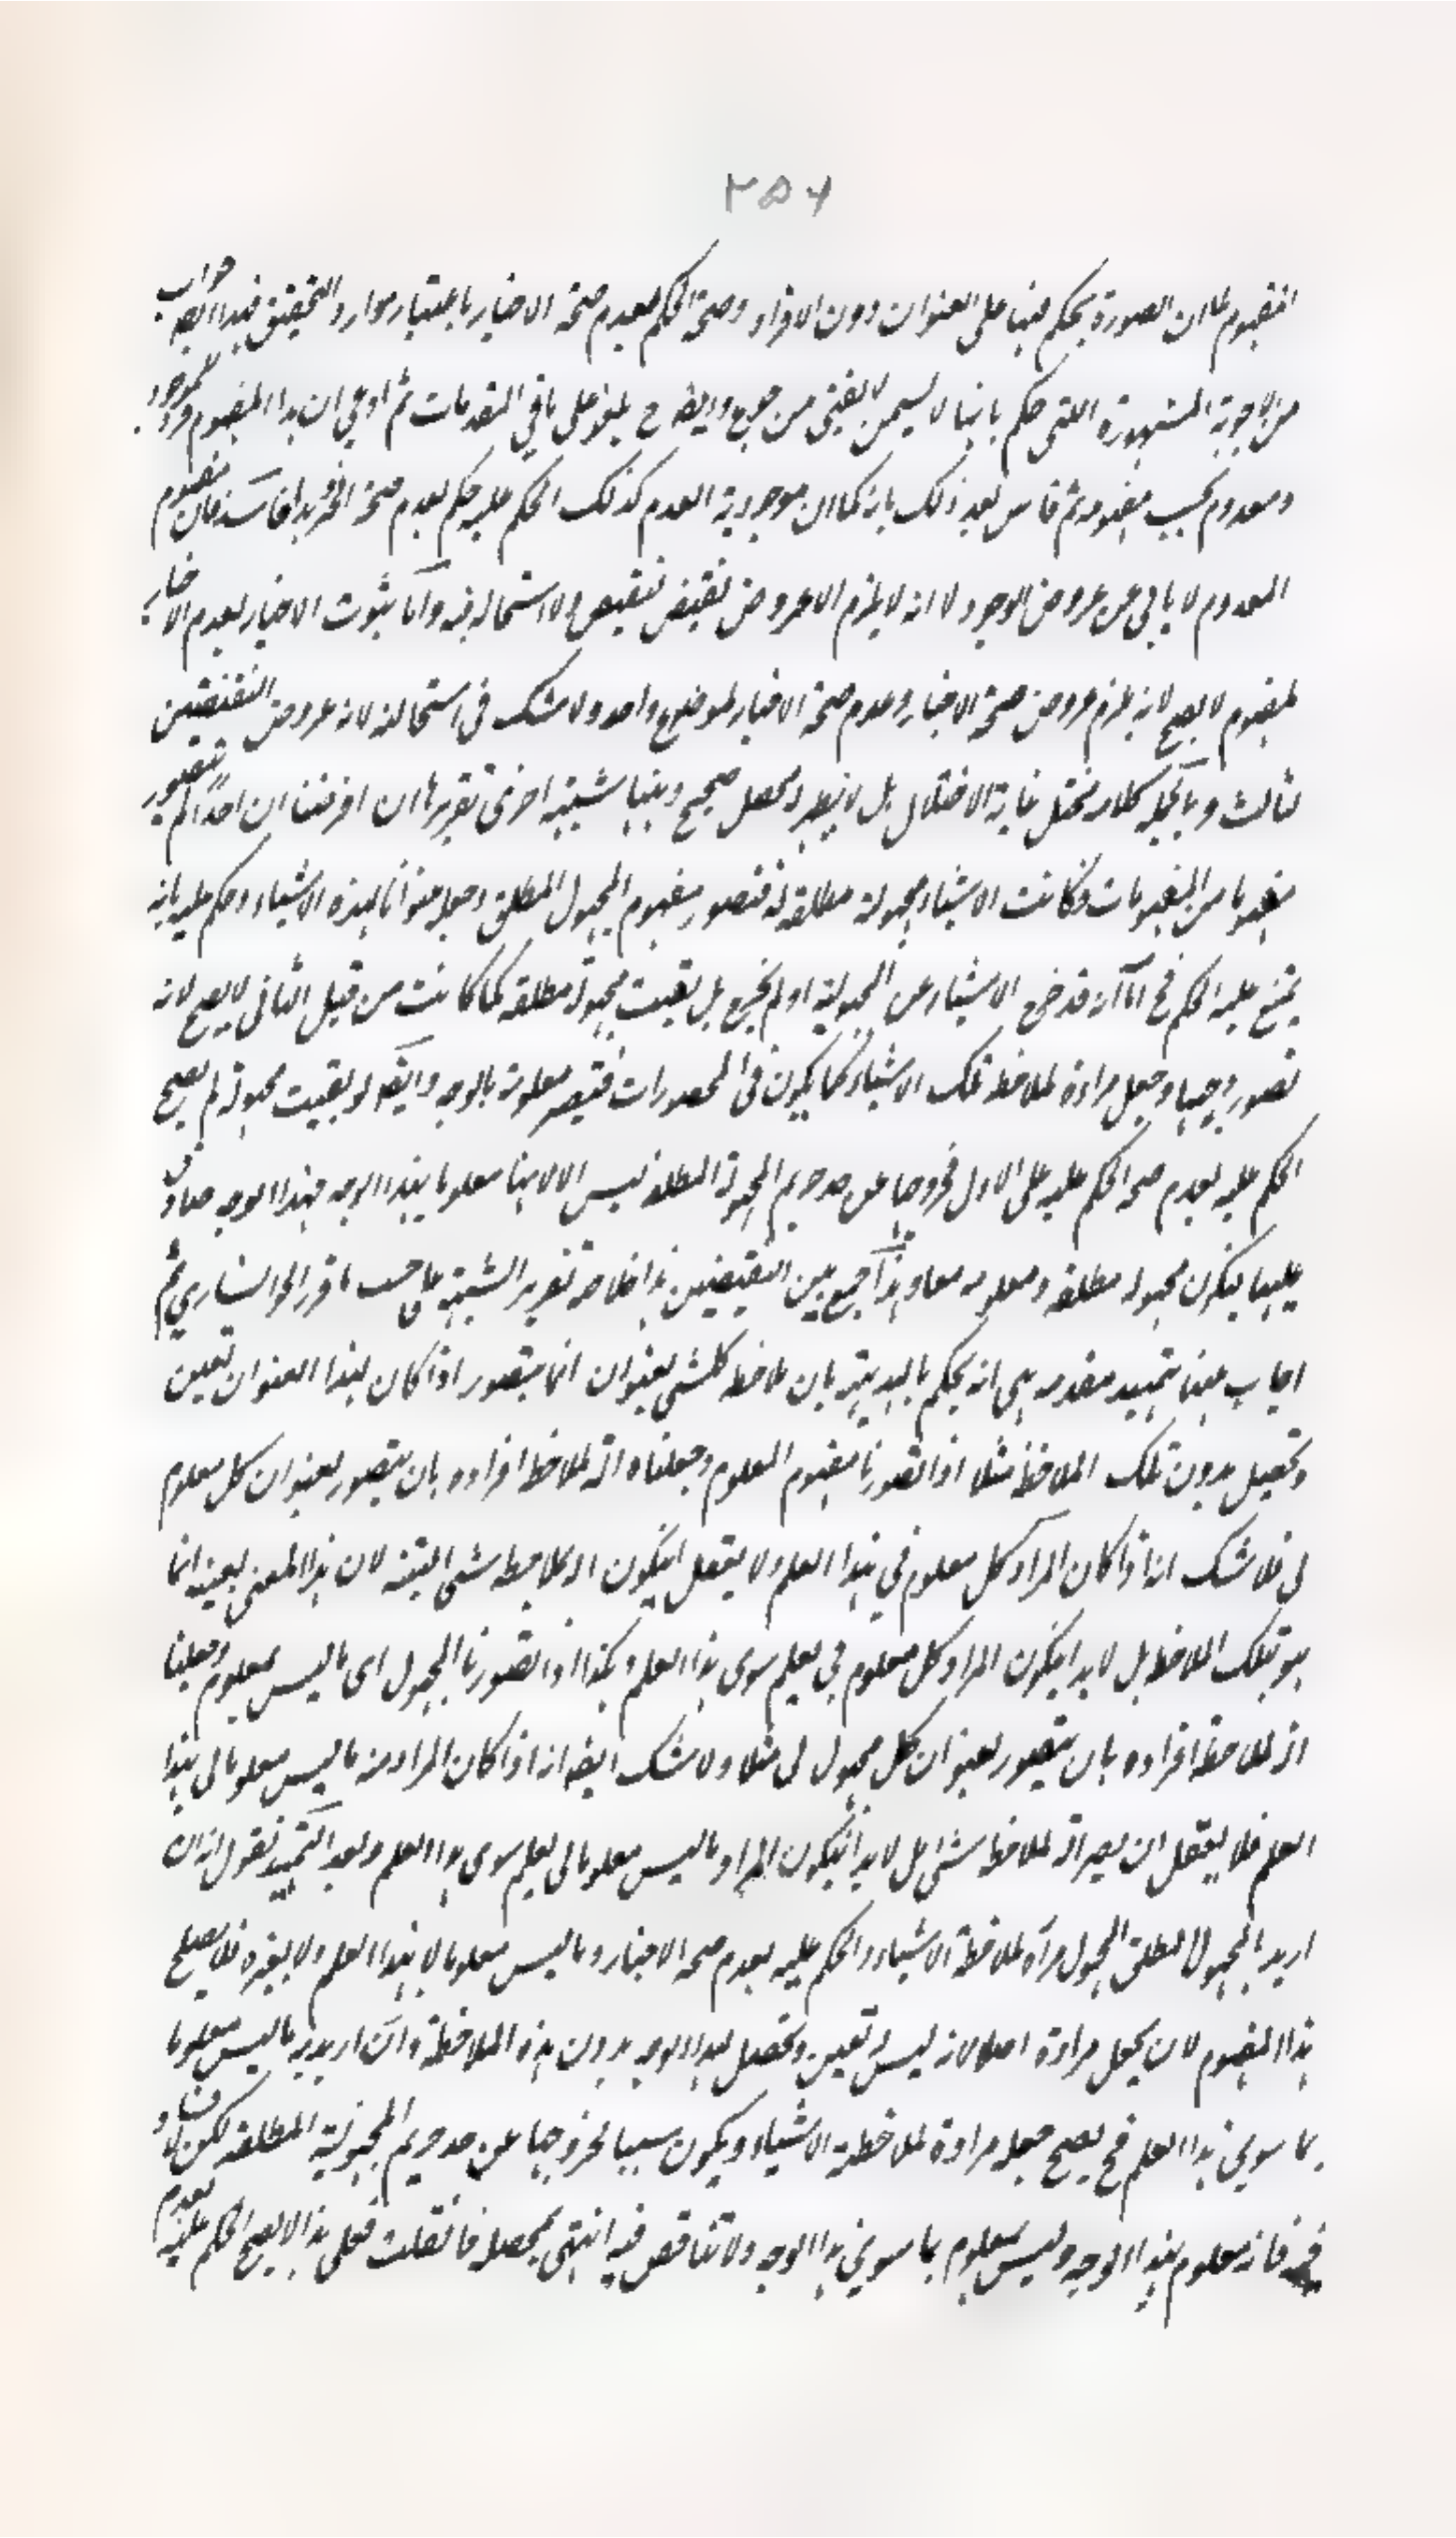 ٢٥٦
المفهوم لما ان الصورة يحكم فيها على العنوان دون الافراد وصحة الحكم بعدم صحة الاخبار باعتبار موارد التحقيق فهذا ايضا جواب
من الاجوبة المشهورة التي حكم بانها لا يسمن لا يغني من جوع وايضا ح يلغو على باقي المقدمات ثم ادعى ان هذا المفهوم فرد للموجود
ومعدوم بحسب مفهومه ثم قاس بعد ذلك بانه كما ان موجودية العدم كذلك الحكم عليه حكم بعدم صحة فان مفهوم
المعدوم لا يابى عن عروض الوجود لا انه لا يلزم الا عروض نقيض لنقيض ولا استحالة فيه واما ثبوت الاخبار بعدم الاخبار
لمفهوم لا يصح لانه يلزم عروض صحة الاخبار وعدم صحة الاخبار لموضوع واحد ولا شك في استحالته لانه عروض النقيضين
لثالث وبالجملة كلامه مختل غاية الاختلال بل لا يظهر له محصل صحيح وههنا شبهة اخرى تقريرها ان افرضنا ان احدا لم يتصور
مفهوما من المفهومات فكانت الاشياء مجهولة مطلقة له فتصور مفهوم المجهول المطلق وجعله عنوانا لهذه الاشياء وحكم عليه بانه
يمتنع عليه الحكم فح اما انه قد خرج الاشياء عن المجهولية او لم يخرج بل بقيت مجهولة مطلقة كما كانت من قبل الثاني لا يصح لانه
تصور وجها وجعل مراة لملاحظة تلك الاشياء كما يكون في المحصورات فتصير معلومة بالوجه وايضا لو بقيت مجهولة لم يصح
الحكم عليه بعدم صحة الحكم عليه على الاول فخروجها عن حد حريم المجهولة المطلقة ليس الا لانها معلوما بهذا الوجه فهذا الوجه صادق
عليها فيكون مجهولة مطلقة ومعلومة معا وهذا جمع بين النقيضين هذا خلاصة تقرير الشبهة على حسب ما قرر الخوانساري ثم
اجاب عنها بتمهيد مقدمة هي انه يحكم بالبديهة بان ملاحظة كل شئ بعنوان انما يتصور اذا كان لهذا العنوان تعين
وتحصل بدون تلك الملاحظة مثلا اذا تصورنا مفهوم المعلوم وجعلناه الة لملاحظة افراده بان يتصور بعنوان كل معلوم
لي فلا شك انه اذا كان المراد كل معلوم في هذا العلم ولا يعقل ان يكون الة لملاحظة شئ البتة لان هذا المعنى بعينه انما
هو بتلك الملاحظة بل لا بد ان يكون المراد كل معلوم لي بعلم سوى هذا العلم وهكذا اذا تصورنا المجهول اى ما ليس بمعلوم وجعلنا
الة لملاحظة افراده بان يتصور بعنوان كل مجهول لي مثلا ولا شك ايضا انه اذا كان المراد منه ما ليس معلوما لي بهذا
العلم فلا يعقل ان يصير الة لملاحظة شئ بل لا بد ان يكون المراد ما ليس معلوما لي بعلم سوى هذا العلم وبعد التمهيد نقول انه ان
اريد بالمجهول المطلق المجهول مراة لملاحظة الاشياء والحكم عليه بعدم صحة الاخبار وما ليس معلوما لا بهذا العلم ولا بغيره فلا يصلح
هذا المفهوم لان يجعل مراة اصلا لانه ليس له تعين وتحصل بهذا الوجه بدون هذه الملاحظة وان اريد به ما ليس معلوما
بما سوى هذا العلم فح يصح جعله مراة لملاحظة الاشياء ويكون سببا لخروجها عن حد حريم المجهولية المطلقة لكن لا فساد
فيه فانه معلوم بهذا الوجه وليس بمعلوم بما سوى هذا الوجه ولا تناقض فيه انتهى بمحصله فان قلت فعلى هذا لا يصح الحكم عليه بعدم